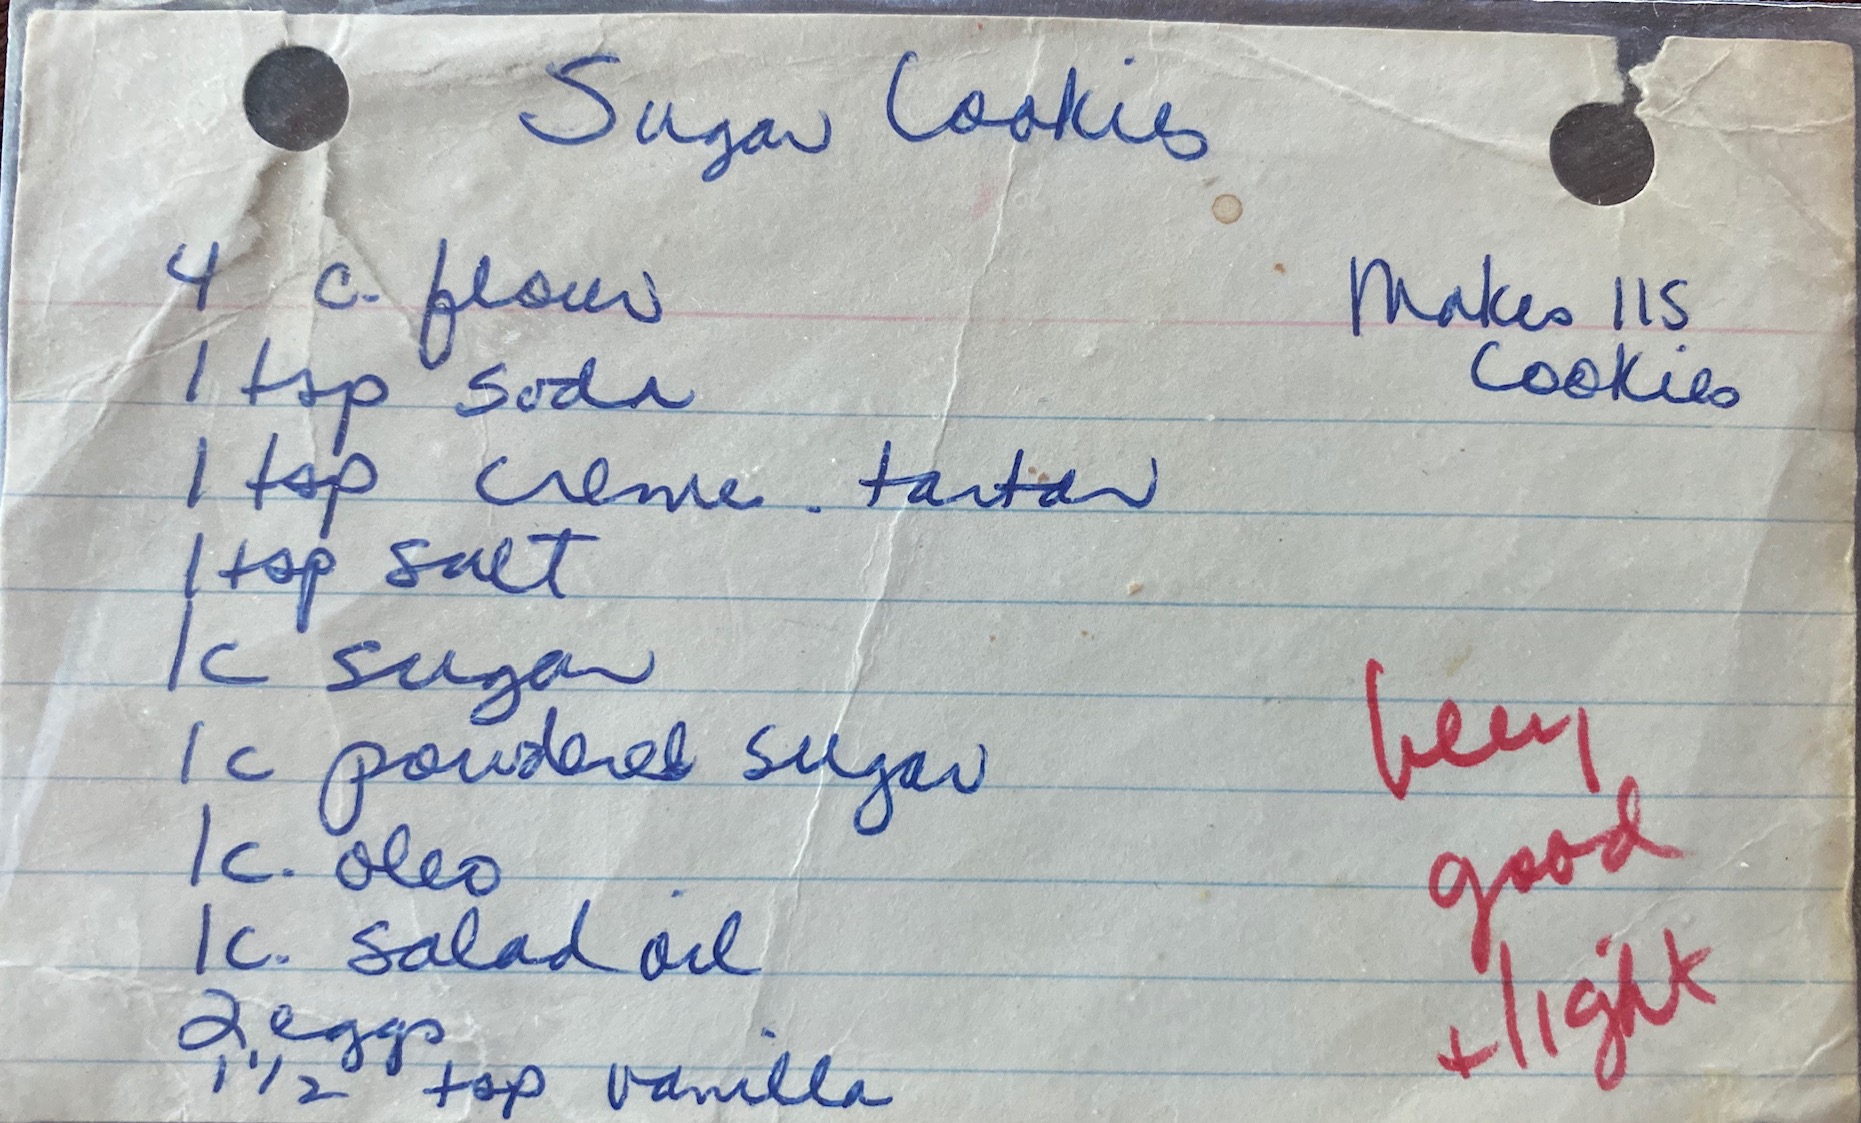 Sugar Cookies
4 c. flour
1 tsp soda
1 tsp creme. tartar
1 tsp salt
1c sugar
1c powdered sugar
1c. oleo
1c. salad oil
2 eggs
1 1/2 tsp vanilla
Makes 115
Cookies
very
good
+ light